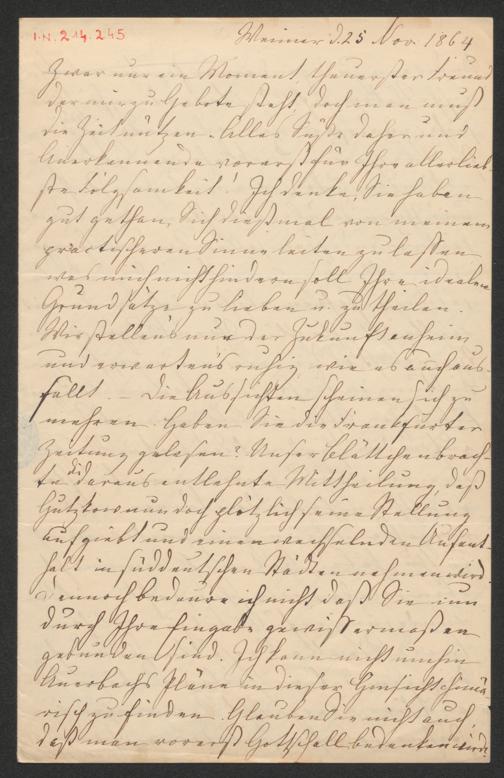 I.N. 214.245
Weimar d. 25 Nov. 1864
Zwar nur ein Moment, theuerster Freund
der mir zu Gebote steht, doch man muß
die Zeit nützen. Alles Süße daher und
Anerkennende vorerst für Ihre allerlieb-
ste Folgsamkeit! Ich denke, Sie haben
gut gethan, Sich dießmal von meinem
practischeren Sinne leiten zu lassen
was mich nicht hindern soll Ihre idealen
Grundsätze zu lieben u. zu theilen.
Wir stellen's nun der Zukunft anheim
und erwarten's ruhig wie es auch aus-
fällt. – Die Aussichten scheinen sich zu
mehren. Haben Sie die Frankfurter
Zeitung gelesen? Unser Blättchen brach-
te die daraus entlehnte Mittheilung, daß
Gutzkow nun doch plötzlich seine Stellung
aufgiebt und einen wechselnden Aufent-
halt in süddeutschen Städten nehmen wird
Dennoch bedaure ich nicht daß Sie nun
durch Ihre Eingabe gewissermaßen
gebunden sind. Ich kann nicht umhin
Auerbachs Pläne in dieser Hinsicht chimä-
risch zu finden. Glauben Sie nicht auch,
daß man vorerst Gottschall bedenken wird